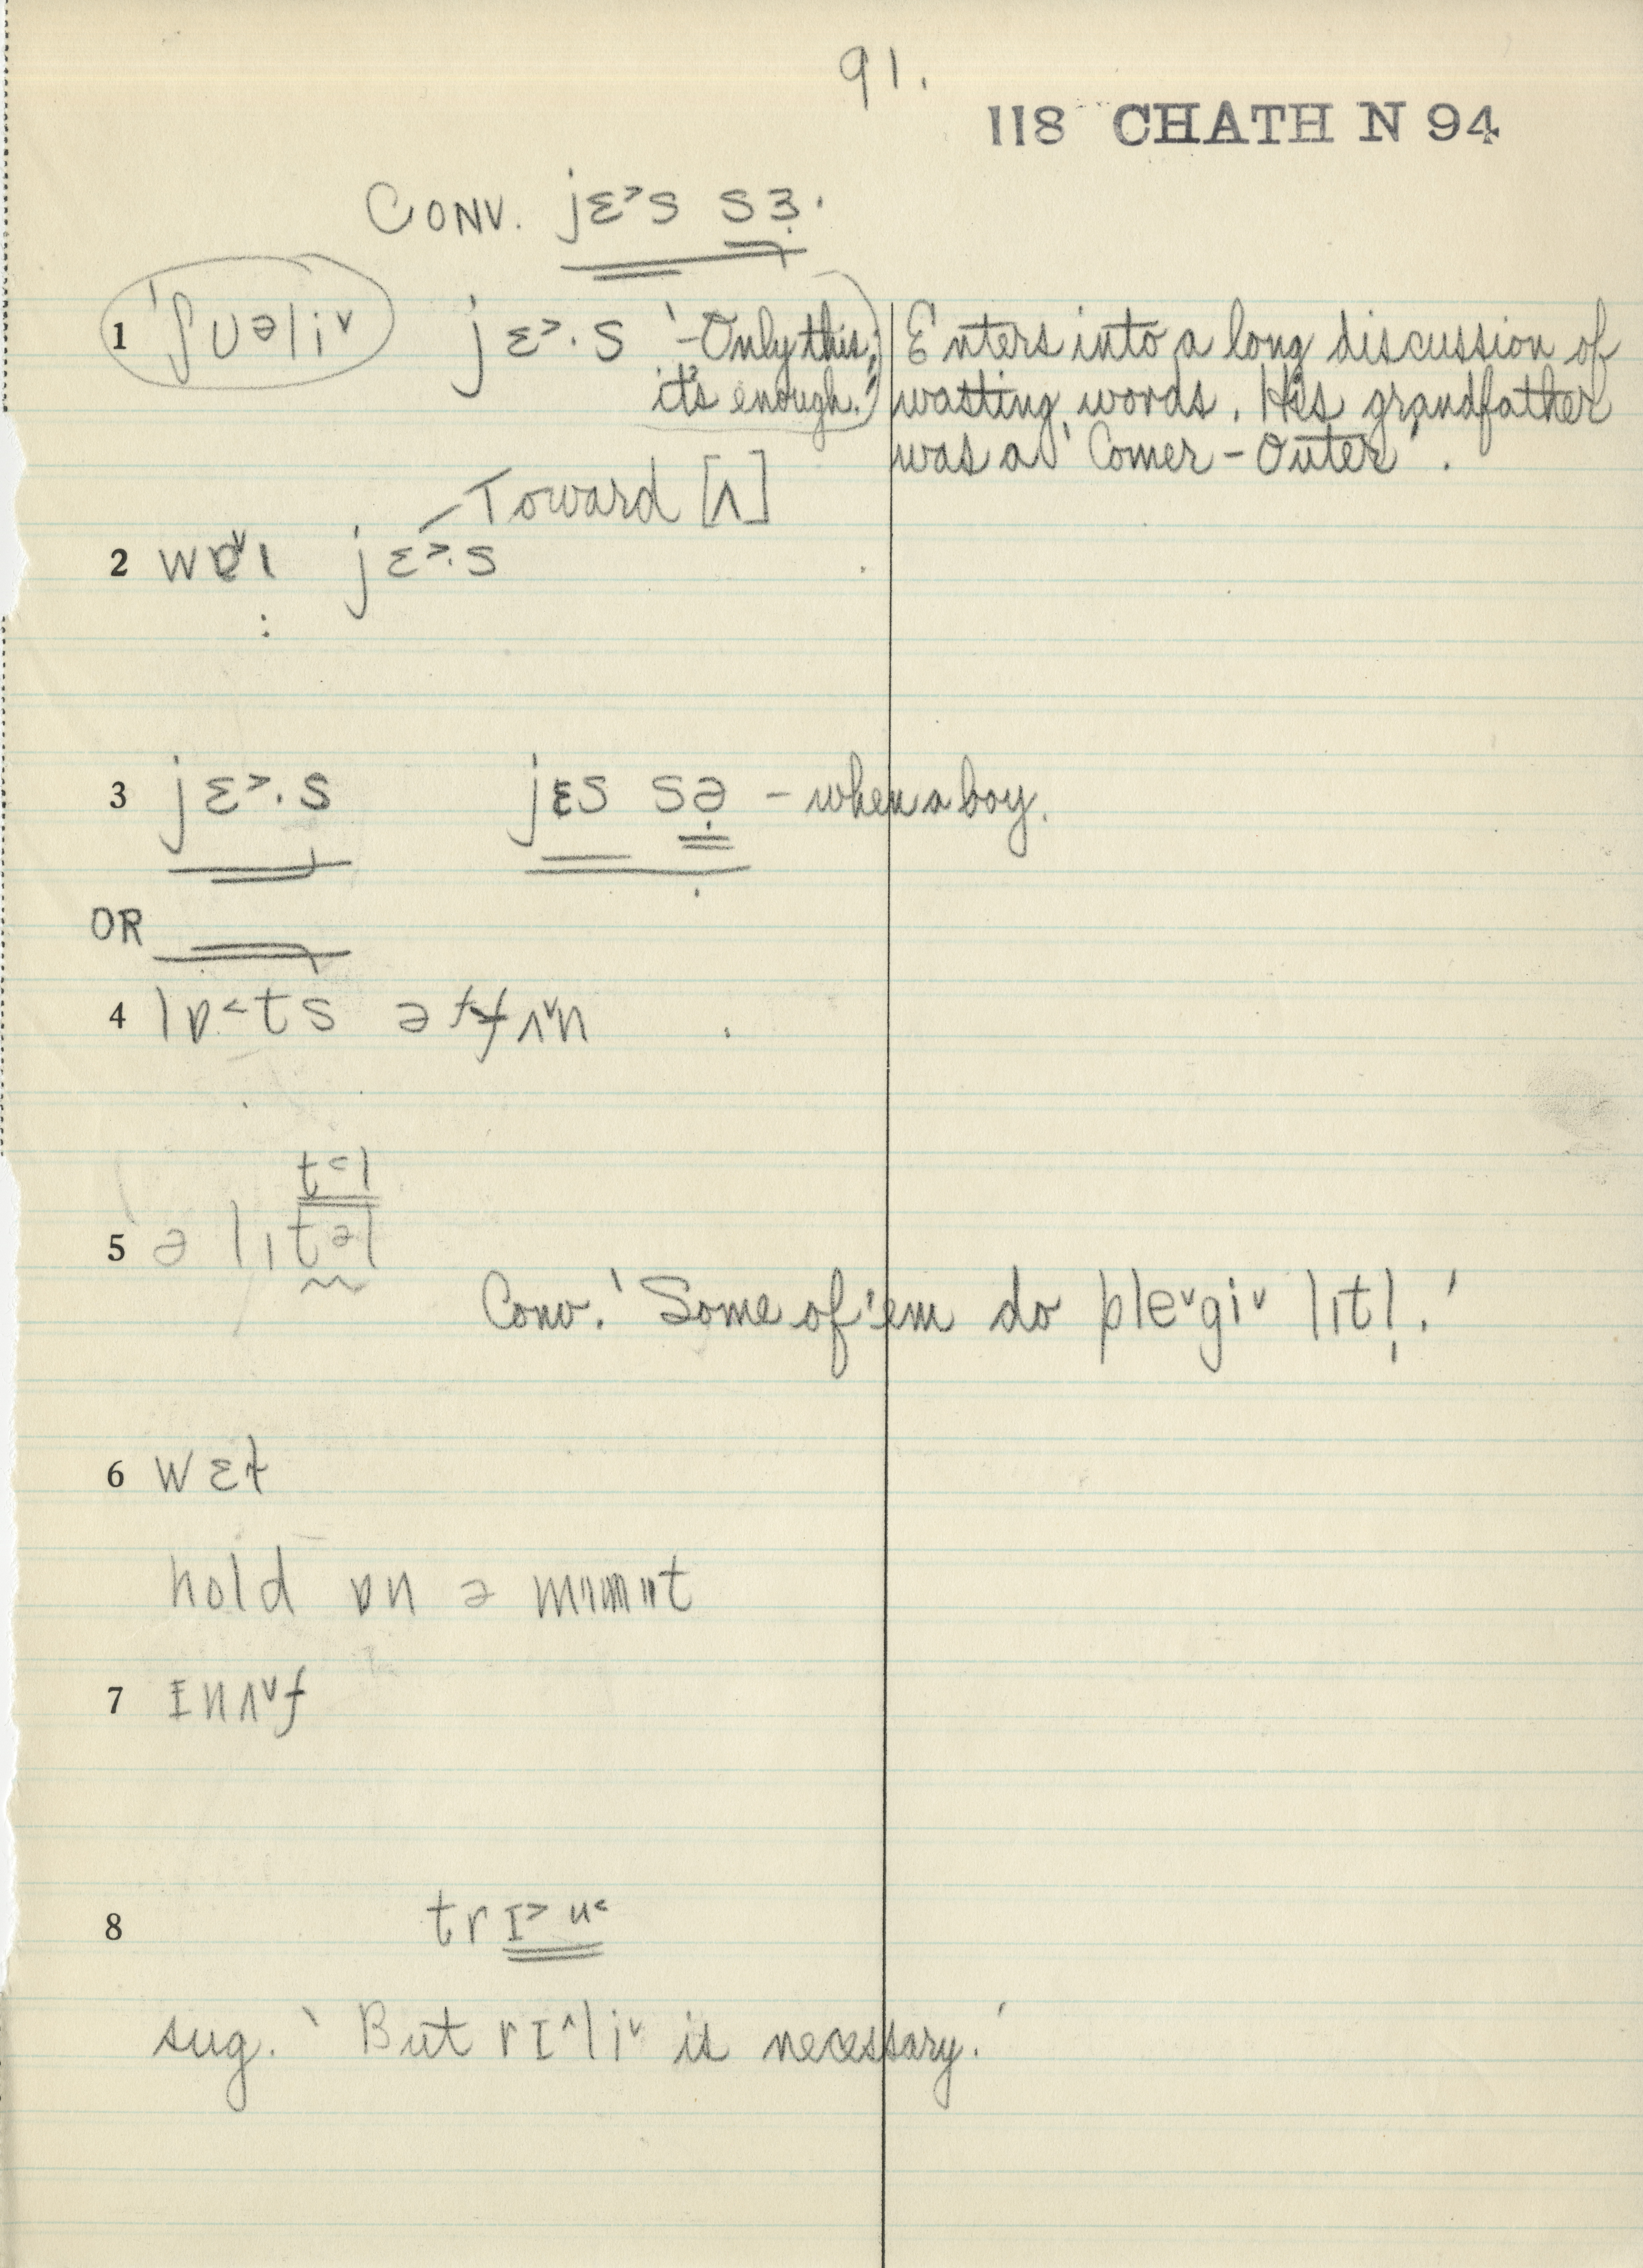 91.
118 CHATH N 94
CONV. jɛ˃s sɜ̣.
1 'ʃʊəliˇ jɛ˃·s '-Only this; Enters into a long discussion of
it's enough.' wasting words. His grandfather
was a 'Comer-Outer'.
-Toward [ʌ]
2 jɛ˃·s
3 jɛ˃·s jɛs sə̣ - when a boy.
OR
4 lɒ˂ts ə ʌˇn
t˂l
5 ə lɪtəl
Conv. 'Some of 'em do pleˇgiˇ lɪtl̩.'
6 wɛt
hold ɒn ə mɪnɪt
7 ɪnʌˇf
8 trɪ˃u˂
sug. 'But rɪ^liˇ is necessary.'